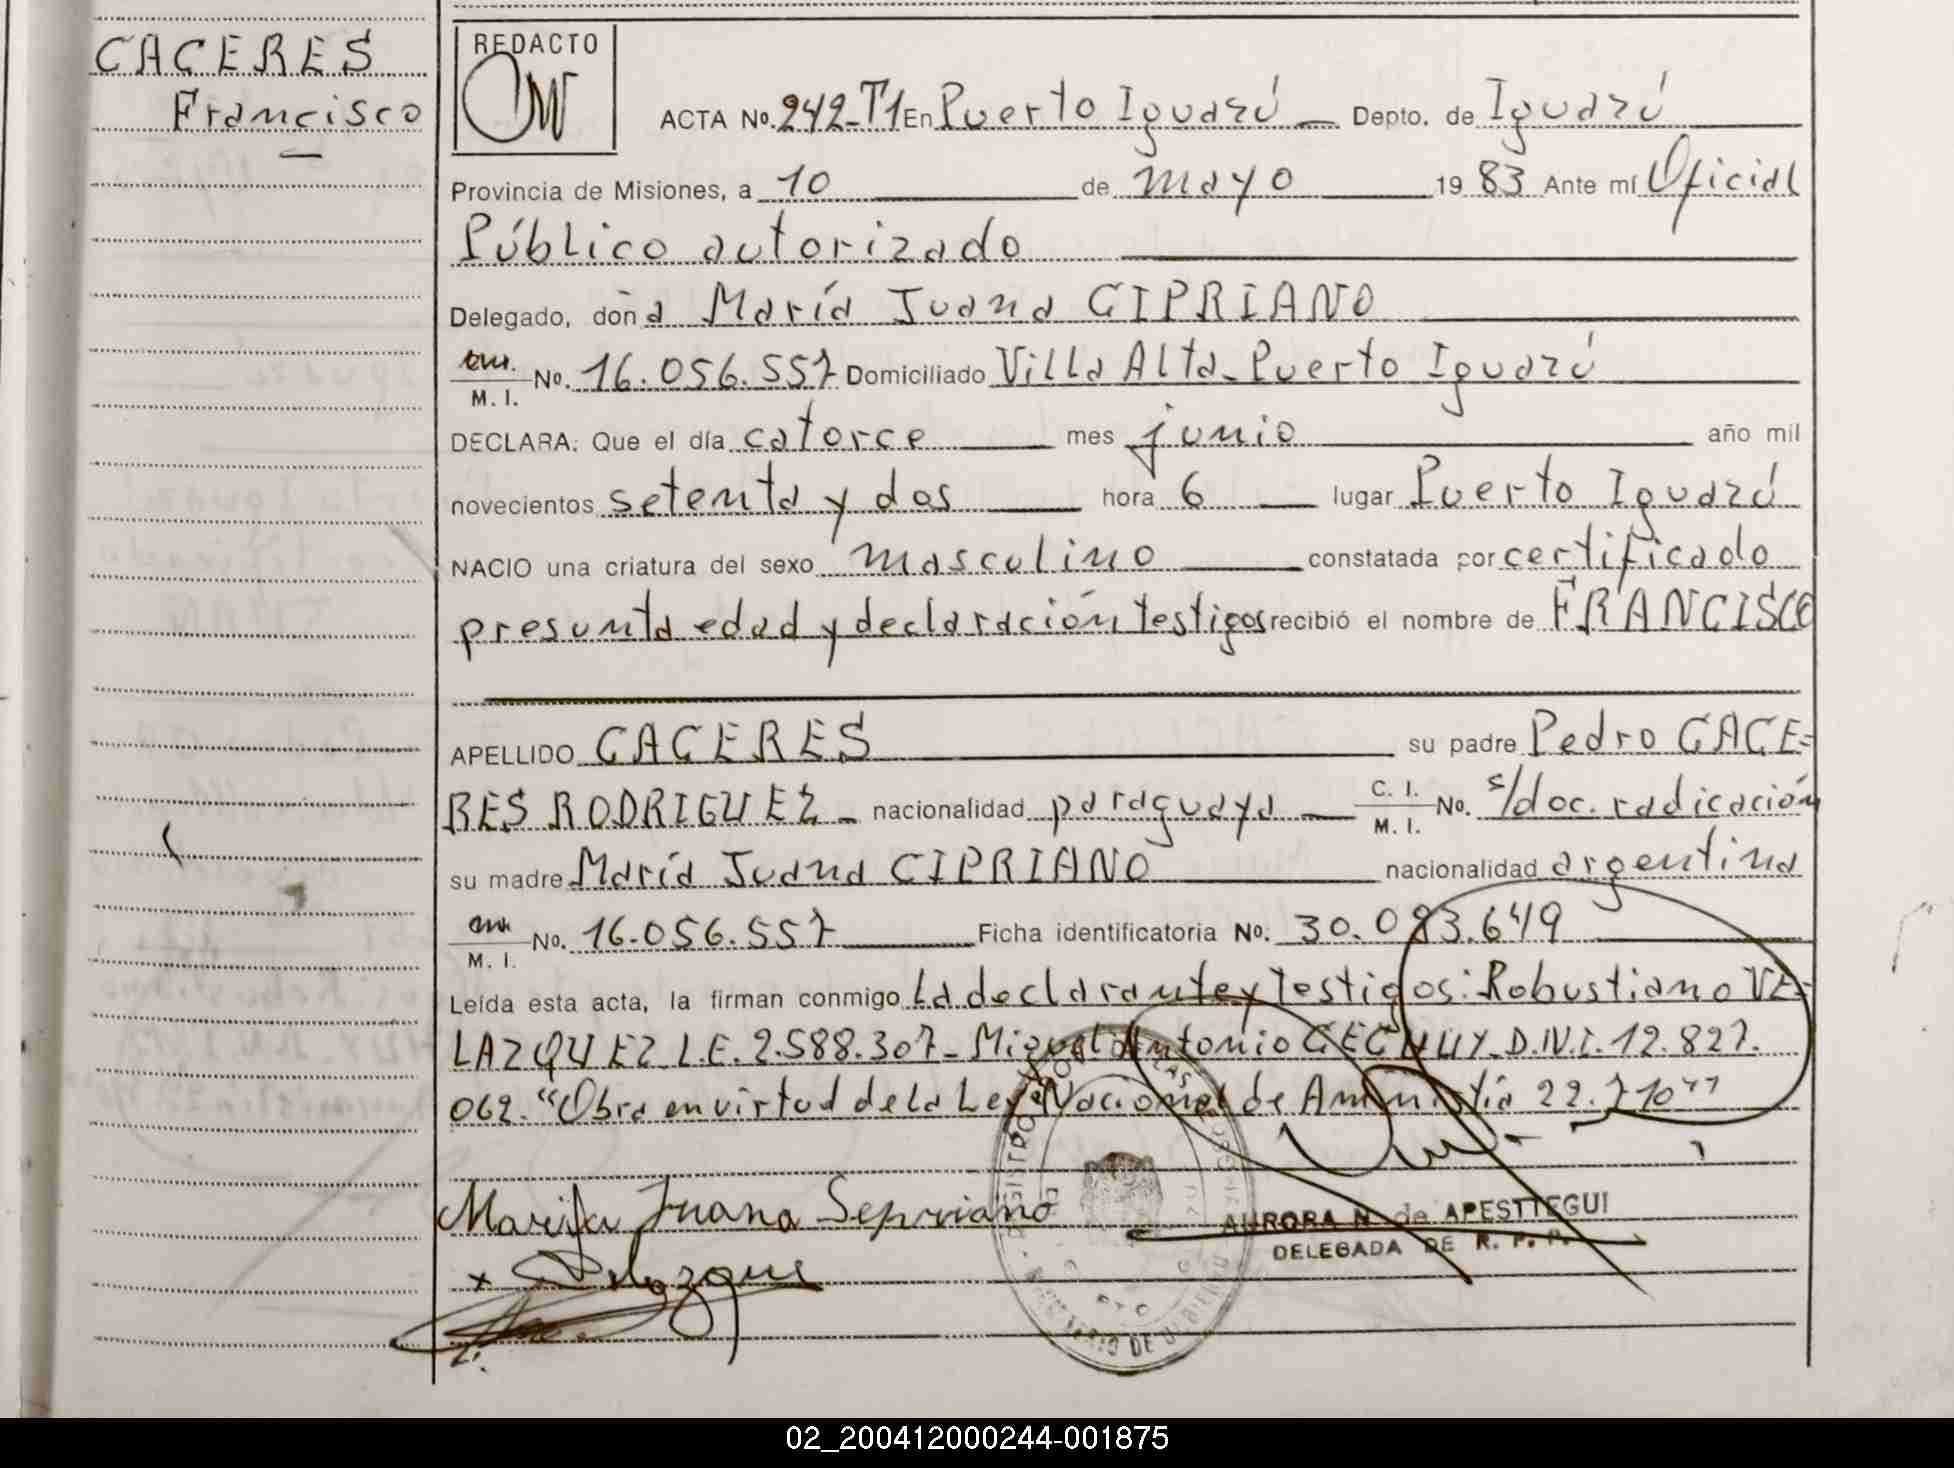 CACERES
Francisco
REDACTO
ACTA No. 242-T1 En Puerto Iguazú Depto. de Iguazú
Provincia de Misiones, a 10 de mayo 1983 Ante mí Oficial
Público autorizado
Delegado, doña María Juana CIPRIANO
M. I. No. 16.056.557 Domiciliado Villa Alta - Puerto Iguazú
DECLARA: Que el día catorce mes junio año mil
novecientos setenta y dos hora 6 lugar Puerto Iguazú
NACIO una criatura del sexo masculino constatada por certificado
presunta edad y declaración testigos recibió el nombre de FRANCISCO
APELLIDO CACERES su padre Pedro CACE=
RES RODRIGUEZ - nacionalidad paraguaya C. I. M. I. No. s/doc. radicación
su madre María Juana CIPRIANO nacionalidad argentina
M. I. No. 16.056.557 Ficha identificatoria No. 30.083.649
Leída esta acta, la firman conmigo la declarante y testigos: Robustiano VE=
LAZQUEZ L.E. 2.588.307 - Miguel Antonio D.N.I. 12.827.
062. "Obra en virtud de la Ley Nacional de Amnistía 22.710"
Maria Juana Sepriano
x Velazque
AURORA N. de APESTTEGUI
DELEGADA DE R. P. P.
02_200412000244-001875